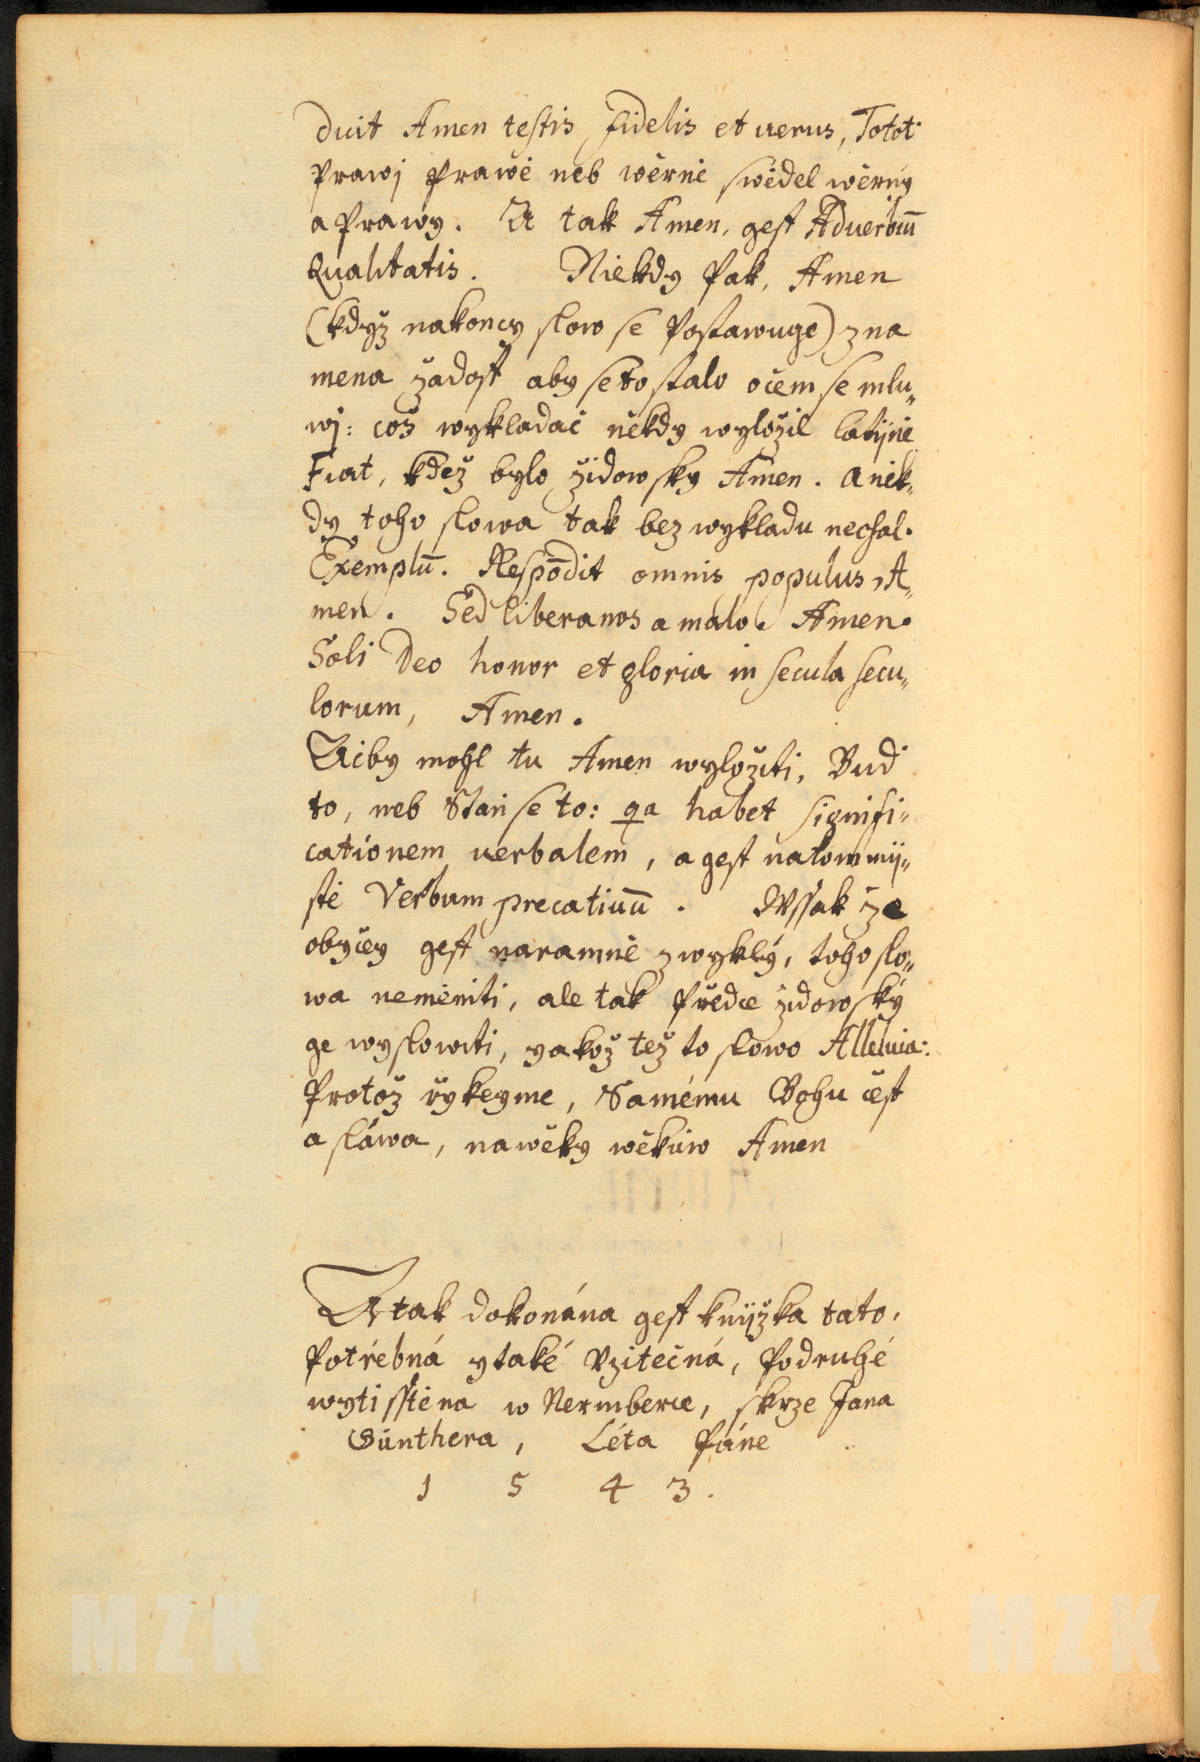 Dicit Amen testis fidelis et uerus, Totot
Prawj Prawě neb wěrně swědek wěrný
a Prawy. A tak Amen, gest Aduerbiū
Qualitatis. Niekdy Pak, Amen
(kdyz nakoncy slow se Postawuge) zna
mena žadost aby se to stalo očem se mlu„
wj: což wykladač někdy wyložil latijně
Fiat, kdež bylo židowsky Amen. A niek„
dy toho slowa tak bez wykladu nechal.
Exemplū. Respōdit omnis populus, A„
men. Sed libera nos a malo. Amen.
Soli Deo honor et gloria in secula secu„
lorum, Amen.
Aiby mohl tu Amen wyložiti, Bud
to, neb Stan se to: qa habet signifi„
cationem uerbalem, a gest natom mij„
stě Verbum precatiuū. Wssak že
obyčey gest naramně zwyklý, toho slo„
wa neměniti, ale tak Předce židowský
ge wysloviti, yakož též to slowo Alleluia:
Protož řykeyme, Samému Bohu čest
a sláwa, nawěky wěkůw Amen
A tak dokonána gest knijžka tato,
Potřebná ytaké Vžitečná, Podruhé
wytisstěna w Nermberce, skrze Jana
Günthera, Léta Páně
1 5 4 3.
MZK MZK